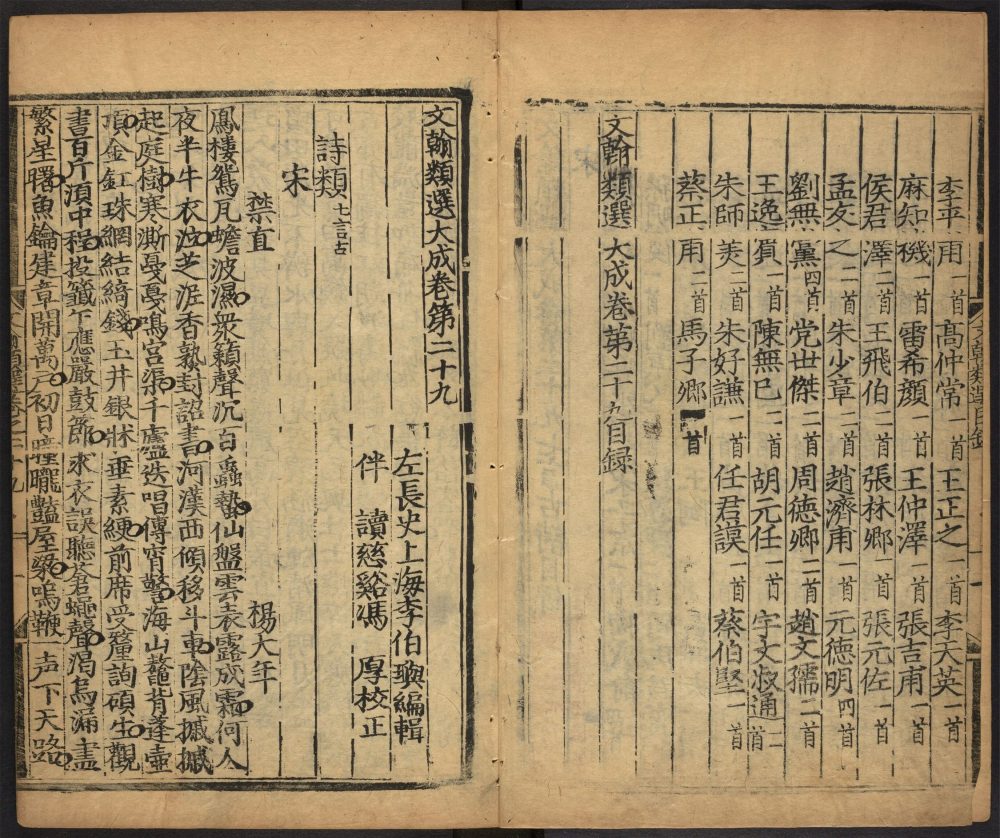 李平甫一首 高仲常一首 王正之一首 李天英一首
麻知機一首 雷希顔一首 王仲澤一首 張吉甫一首
侯君澤二首 王飛伯一首 張林卿一首 張元佐一首
孟友之二首 朱少章二首 趙濟甫一首 元德明四首
劉無黨四首 党世傑二首 周德卿二首 趙文孺二首
王逸賓一首 陳無巳二首 胡元任一首 宇文叔通二首
朱師美二首 朱好謙一首 任君謨一首 蔡伯堅一首
蔡正甫二首 馬子卿一首
文翰類選大成卷第二十九目録
文翰類選目錄
文翰類選大成卷第二十九
左長史上海李伯璵編輯
伴讀慈谿馮厚校正
詩類七言古
宋
禁直 楊大年
鳳樓鴛瓦蟾波濕衆籟聲沉百蟲蟄仙盤雲表露成霜何人
夜半牛衣泣芝泥香熟封詔書河漢西傾移斗車陰風撼撼
起庭樹寒澌戞戞鳴宮渠千廬迭唱傳宵警海山鼇背蓬壺
頂金釭珠網結綺錢玉井銀牀垂素綆前席受釐詢碩生觀
書百斤湏中程投籤乍應嚴鼓節求衣誤聽蒼蠅聲渴烏漏盡
繁星曙魚鑰建章開萬戸初日曈曨豔屋梁鳴鞭一声下天路